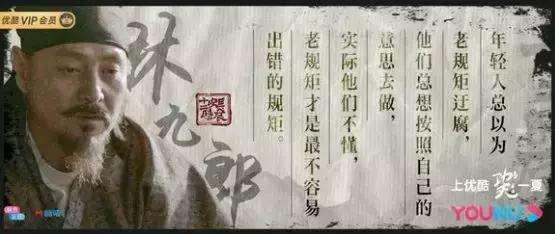 优酷VIP会员
林九郎
年轻人总以为
老规矩迂腐，
他们总想按照自己的
意思去做，
实际他们不懂，
老规矩才是最不容易
出错的规矩。
上优酷 一夏
YOUKU